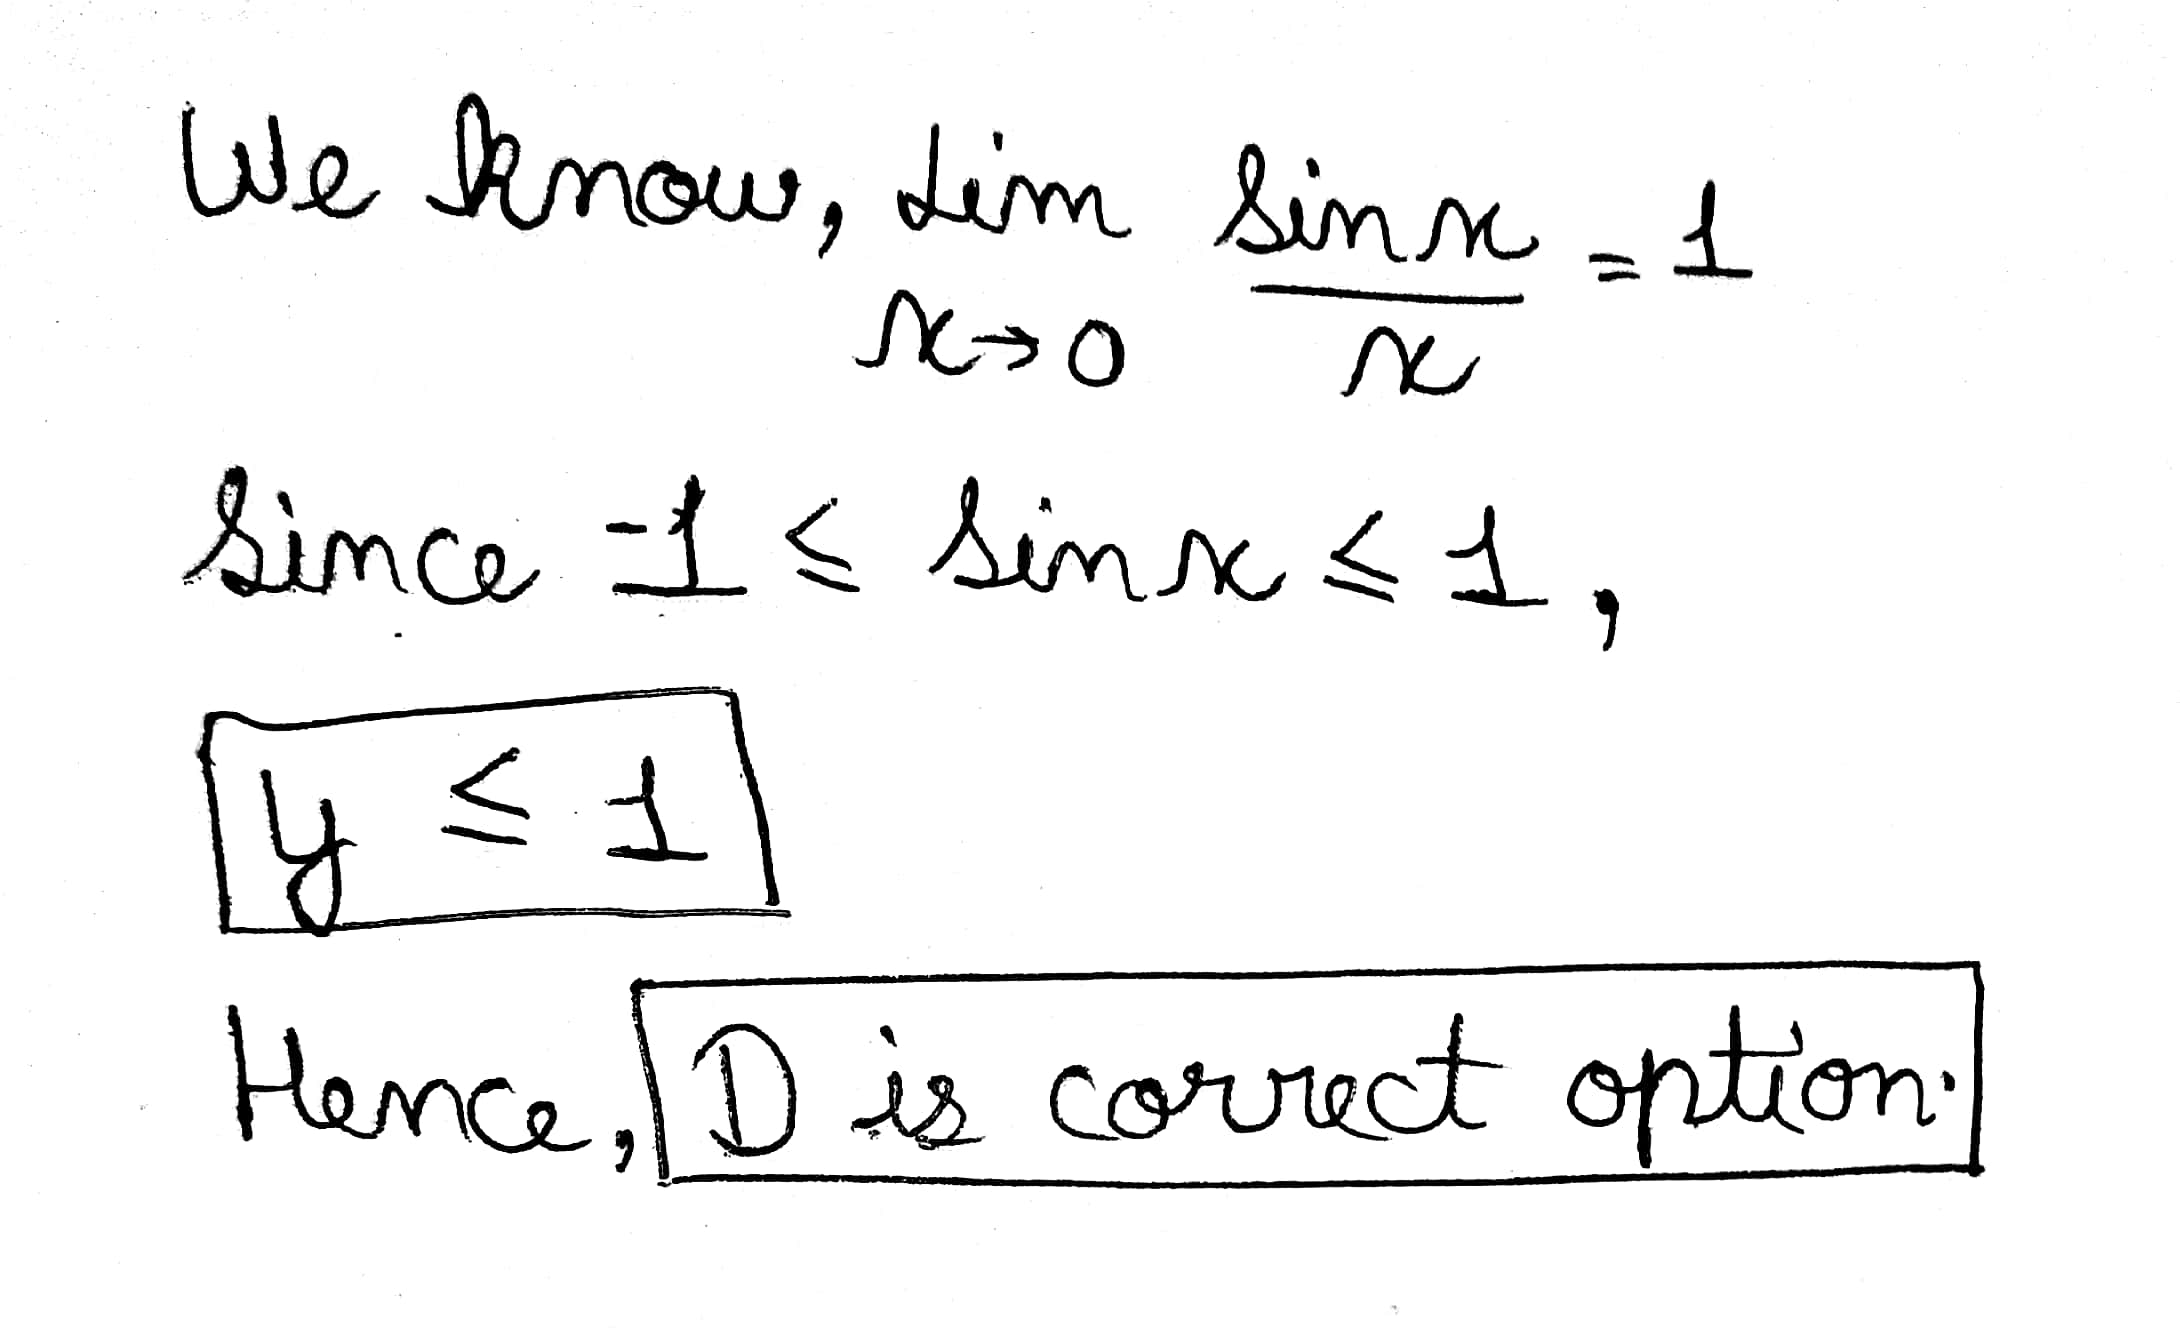 We know, Lim sin x = 1
x→0 x
Since -1 ≤ sin x ≤ 1,
y ≤ 1
Hence, D is correct option.